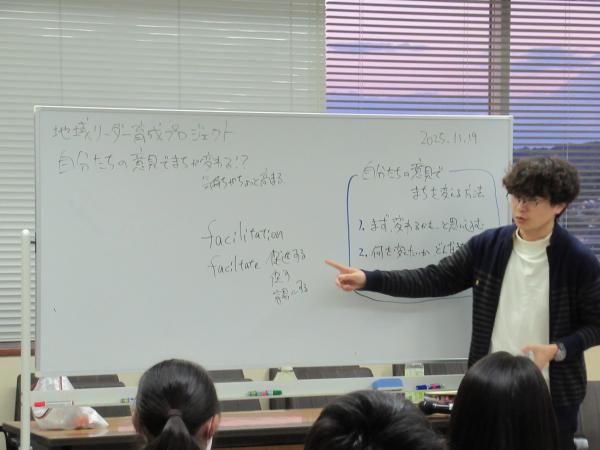 地域リーダー育成プロジェクト
2025.11.19
自分たちの意見でまちが変わる!?
気持ちがちょっと変わる
facilitation
faciltate 促進する
促す
容易にする
自分たちの意見で
まちを変える方法
1. まず、変わるかも、と思い込む
2. 何を変えたいか どんな